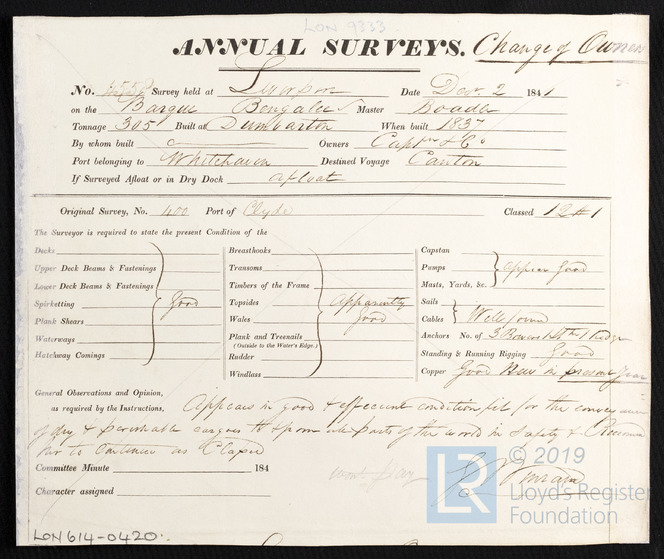 LON 9333
ANNUAL SURVEYS. Change of Owner
No. Survey held at Date Dec. 2 1841
on the Barque Bengalee Master Boadle
Tonnage 305 Built at Dumbarton When built 1837
By whom built Owners Captn & Co
Port belonging to Whitehaven Destined Voyage Canton
If Surveyed Afloat or in Dry Dock afloat
Original Survey, No. 400 Port of Clyde Classed 12 A 1
The Surveyor is required to state the present Condition of the
Decks
Upper Deck Beams & Fastenings
Lower Deck Beams & Fastenings
Spirketting Good
Plank Shears
Waterways
Hatchway Comings
Breasthooks
Transoms
Timbers of the Frame
Topsides Apparently
Wales Good
Plank and Treenails
(Outside to the Water's Edge.)
Rudder
Windlass
Capstan
Pumps appear Good
Masts, Yards, &c.
Sails
Cables Well found
Anchors No. of 3 Bowers
Standing & Running Rigging Good
Copper Good New in present Year
General Observations and Opinion,
as required by the Instructions, Appears in good & efficient condition fit for the conveyance
of dry & perishable cargoes to & from all parts of the world in safety &
to continue as Classed
Committee Minute 184
Character assigned
LON614-0420
LR
© 2019
Lloyd's Register
Foundation